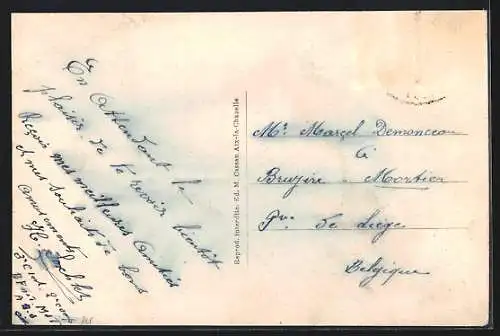 En Attendant le
plaisir de te revoir bientôt
Reçois mes meilleures Amitiés
et mes souhaits de bons
amusements
H.
Reprod. interdite. Ed. M. Cussac Aix-la-Chapelle
Mr. Marcel Demonceau
à
Bruyère - Mortier
Pce de Liége
Belgique